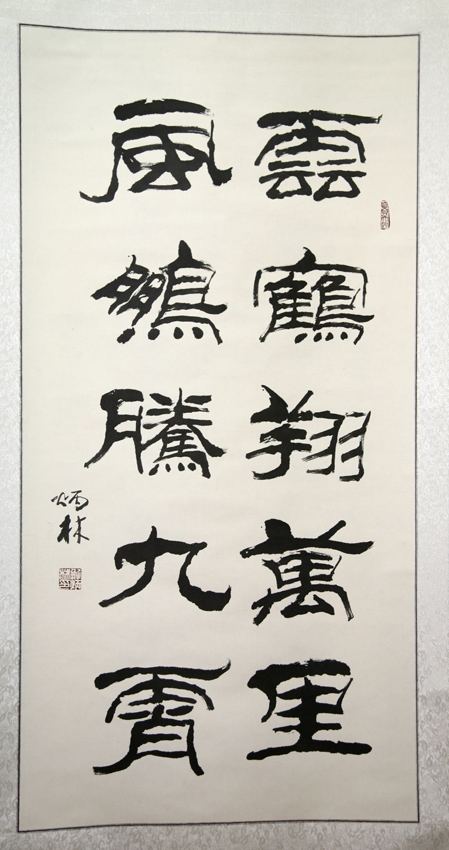 雲鶴翔萬里
風鵬騰九霄
炳林